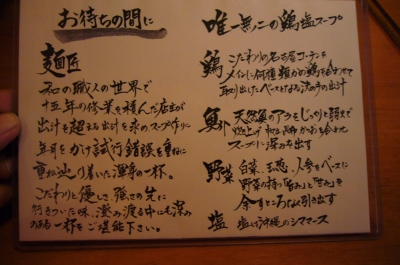 お待ちの間に
麺匠
和の職人の世界で
十五年の修業を積んだ店主が
出汁を超える出汁を求めスープ作りに
年月をかけ試行錯誤を重ね
重ね辿り着いた渾身の一杯。
こだわりと優しさ、強さの先に
行きついた味、澄み渡る中にも深み
のある一杯をご堪能下さい。
唯一無二の鶏塩スープ
鶏 こだわりの名古屋コーチンを
メインに何種類かの鶏を合わせて
取り出したベースとなる 出汁
魚介 天然魚のアラをじっくりと弱火で
スープに深みを出す
野菜 白菜、玉葱、人参をベースに
野菜の持つ「旨み」と「甘み」を
余すところなく引き出す
塩 塩は沖縄のシママース